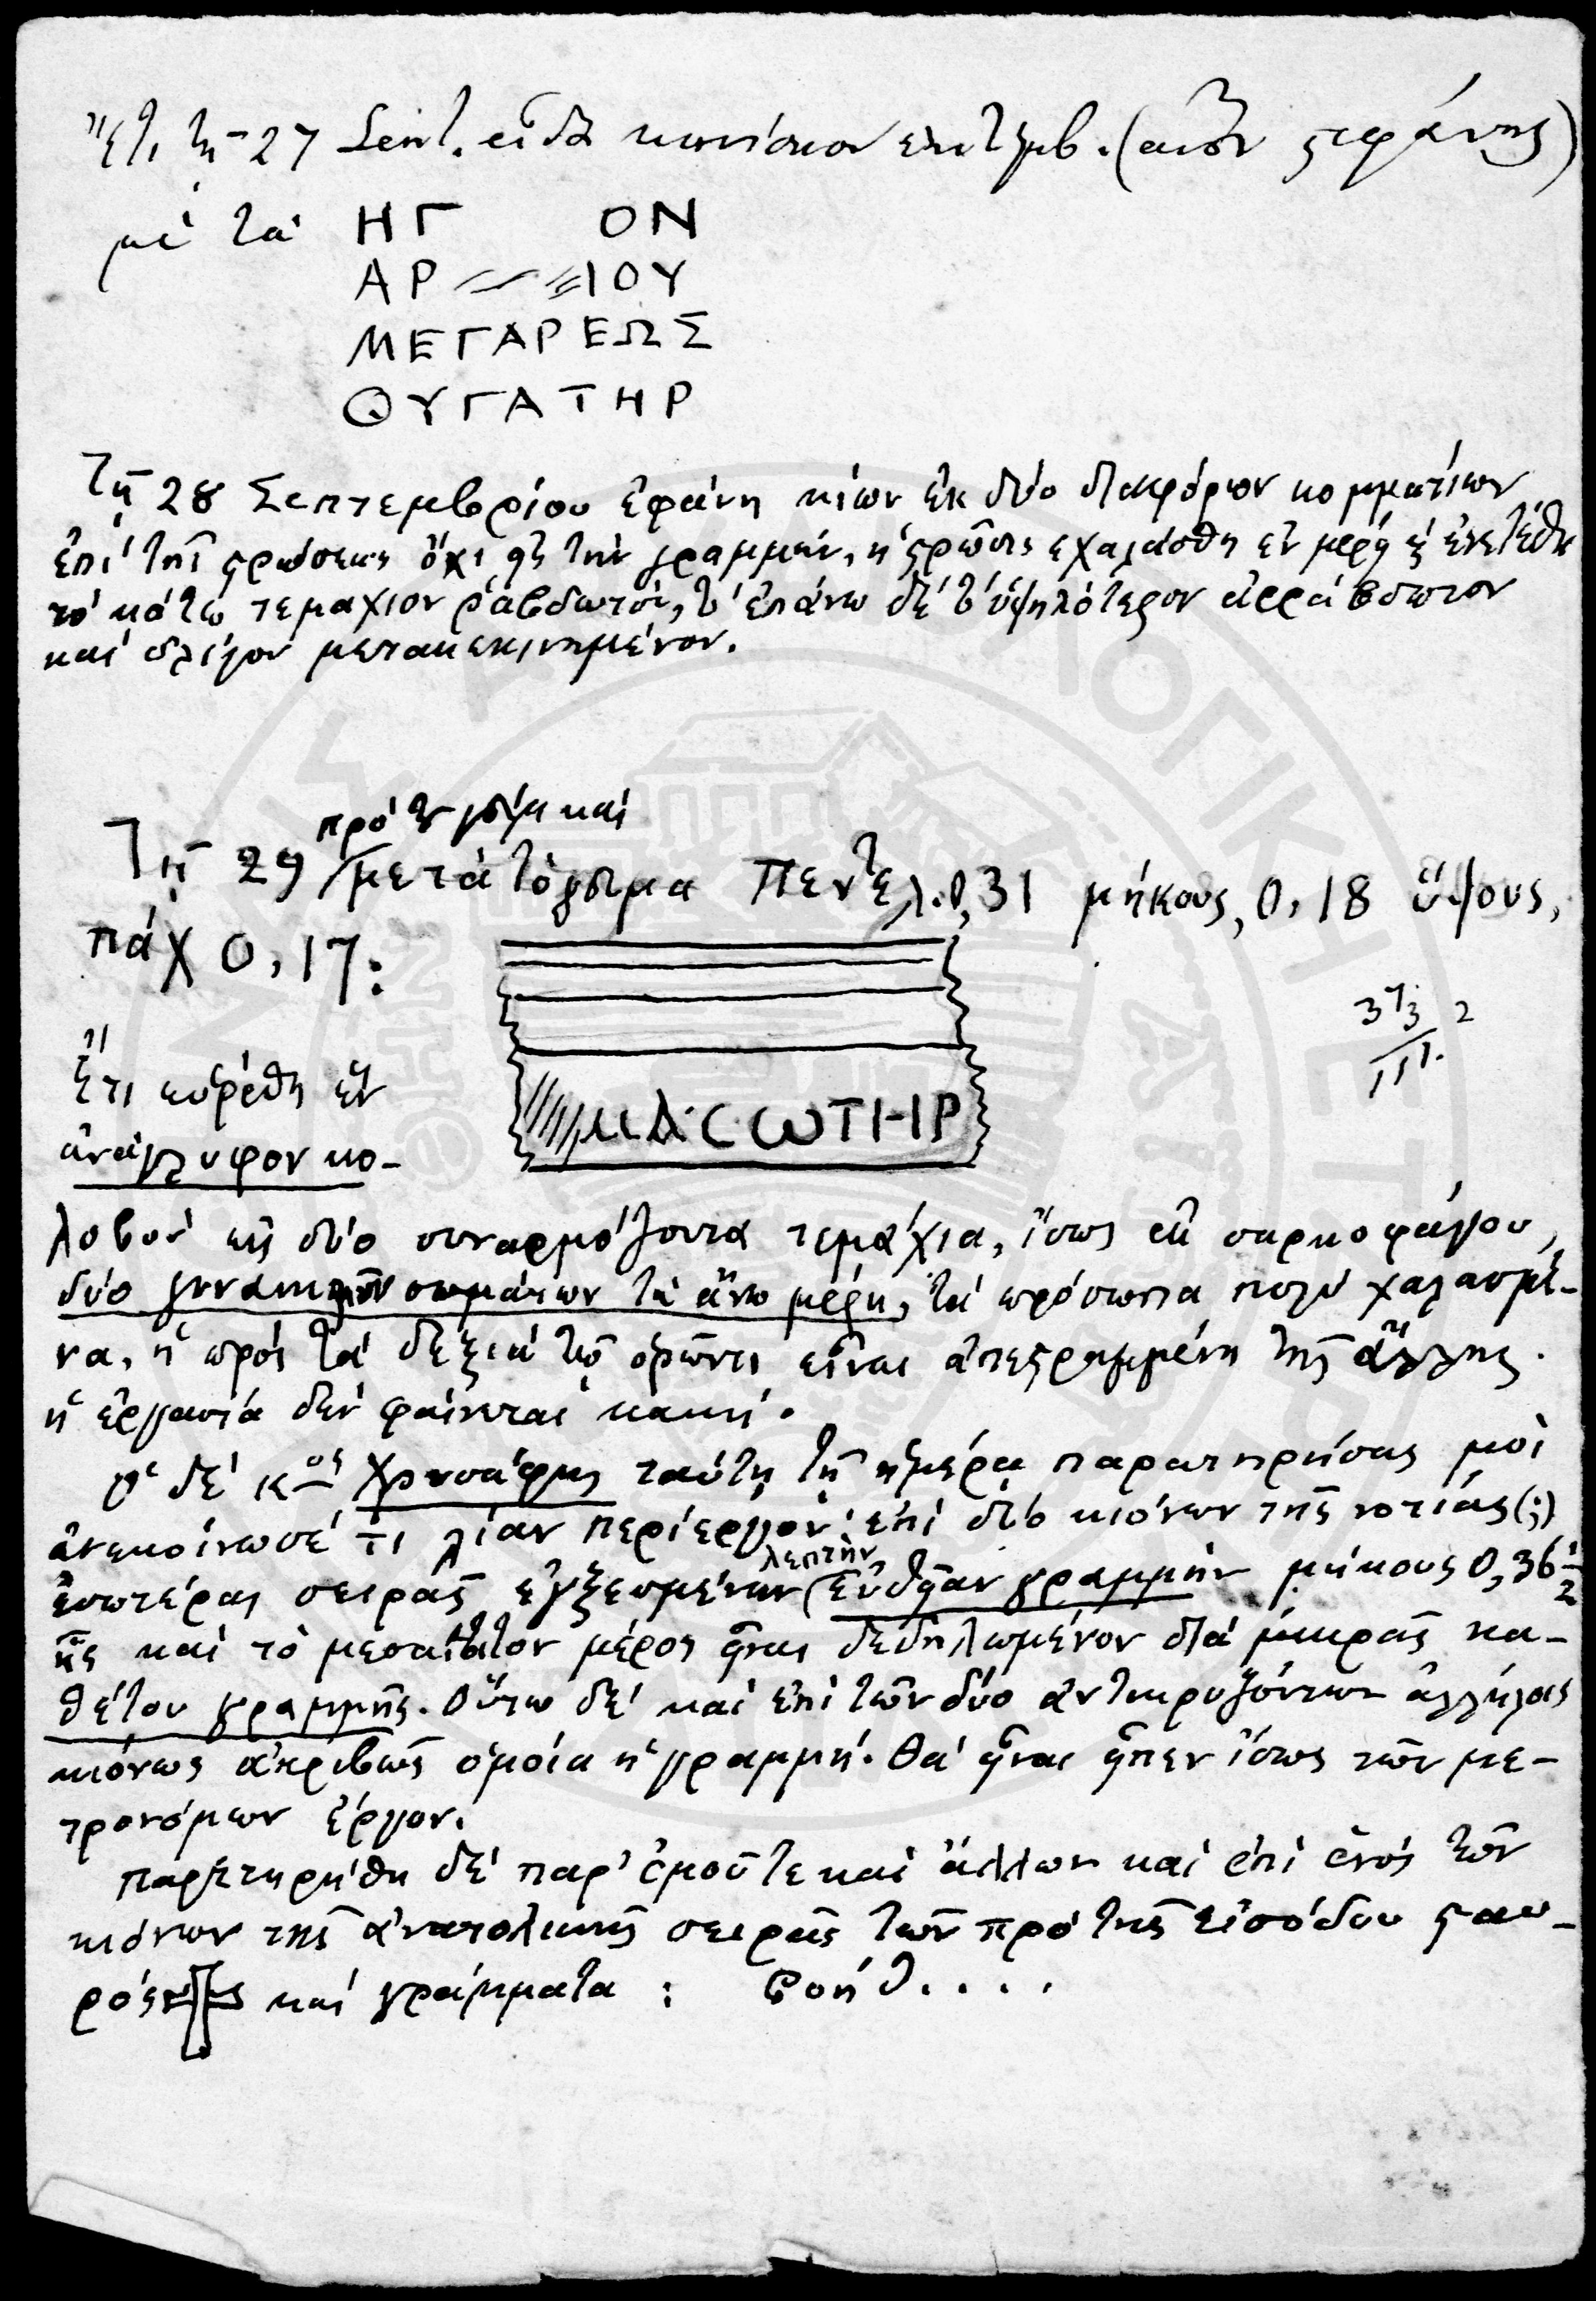 Ἔτι τῇ 27 Σεπτ. εἶδα κιονίσκον ἐπιτύμβ. (ἄνευ στεφάνης)
μὲ τὰ ΗΓ ΟΝ
ΑΡ ΙΟΥ
ΜΕΓΑΡΕΩΣ
ΘΥΓΑΤΗΡ
Τῇ 28 Σεπτεμβρίου ἐφάνη κίων ἐκ δύο διαφόρων κομματίων
ἐπὶ τῆς στρώσεως ὄχι εἰς τὴν γραμμήν, ἡ στρῶσις ἐχαλάσθη ἐν μέρει ἐνετέθη
τὸ κάτω τεμάχιον ῥαβδωτόν, τὸ ἐπάνω δὲ τὸ ὑψηλότερον ἀρράβδωτον
καὶ ὀλίγον μετακεκινημένον.
πρὸ τοῦ γεῦμα καὶ
Τῇ 29 μετὰ τὸ γεῦμα Πεντελ. 0,31 μήκους, 0,18 ὕψους,
πάχ 0,17:
ΜΑ·CΩΤΗΡ
Ἔτι εὑρέθη ἓν
ἀνάγλυφον κο-
λοβὸν εἰς δύο συναρμόζοντα τεμάχια, ἴσως ἐκ σαρκοφάγου,
δύο γυναικείων σωμάτων τὰ ἄνω μέρη, τὰ πρόσωπα πολὺ χαλασμέ-
να, ἡ πρὸς τὰ δεξιὰ τῷ ὁρῶντι εἶναι ἀπεστραμμένη τῆς ἄλλης.
ἡ ἐργασία δὲν φαίνεται κακή.
Ὁ δὲ κος Χρυσάφης ταύτῃ τῇ ἡμέρᾳ παρατηρήσας μοὶ
ἀνεκοίνωσέ τι λίαν περίεργον: ἐπὶ δύο κιόνων τῆς νοτίας(;)
λεπτὴν
ἐσωτέρας σειρᾶς ἐγξεσμένην εὐθεῖαν γραμμὴν μήκους 0,36 1/2
ἧς καὶ τὸ μεσαίτατον μέρος εἶναι δεδηλωμένον διὰ μικρᾶς κα-
θέτου γραμμῆς. Οὕτω δὲ καὶ ἐπὶ τῶν δύο ἀντικρυζόντων ἀλλήλους
κιόνως ἀκριβῶς ὁμοία ἡ γραμμή. Θὰ εἶναι εἶπεν ἴσως τῶν με-
τρονόμων ἔργον.
Παρετηρήθη δὲ παρ' ἐμοῦ τε καὶ ἄλλων καὶ ἐπὶ ἑνὸς τῶν
κιόνων τῆς ἀνατολικῆς σειρᾶς τῶν πρὸ τῆς εἰσόδου σταυ-
ρὸς καὶ γράμματα: Βοήθ....